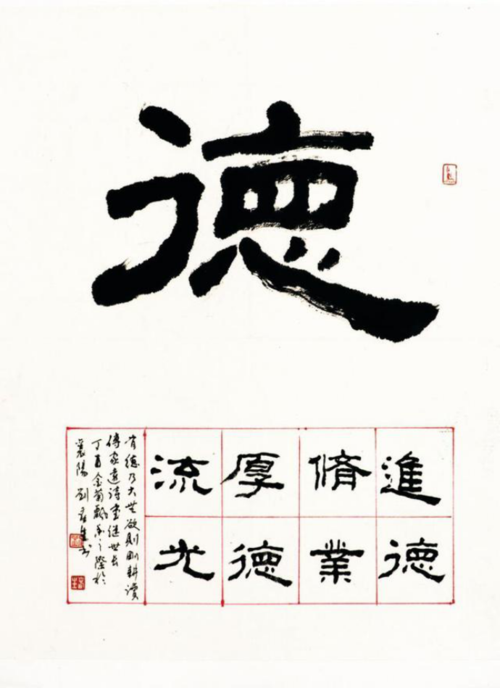 德
進德
脩業
厚德
流光
有德乃大無欲則剛耕讀
傳家遠詩書繼世長
丁酉金菊飄香之際於
襄陽 劉